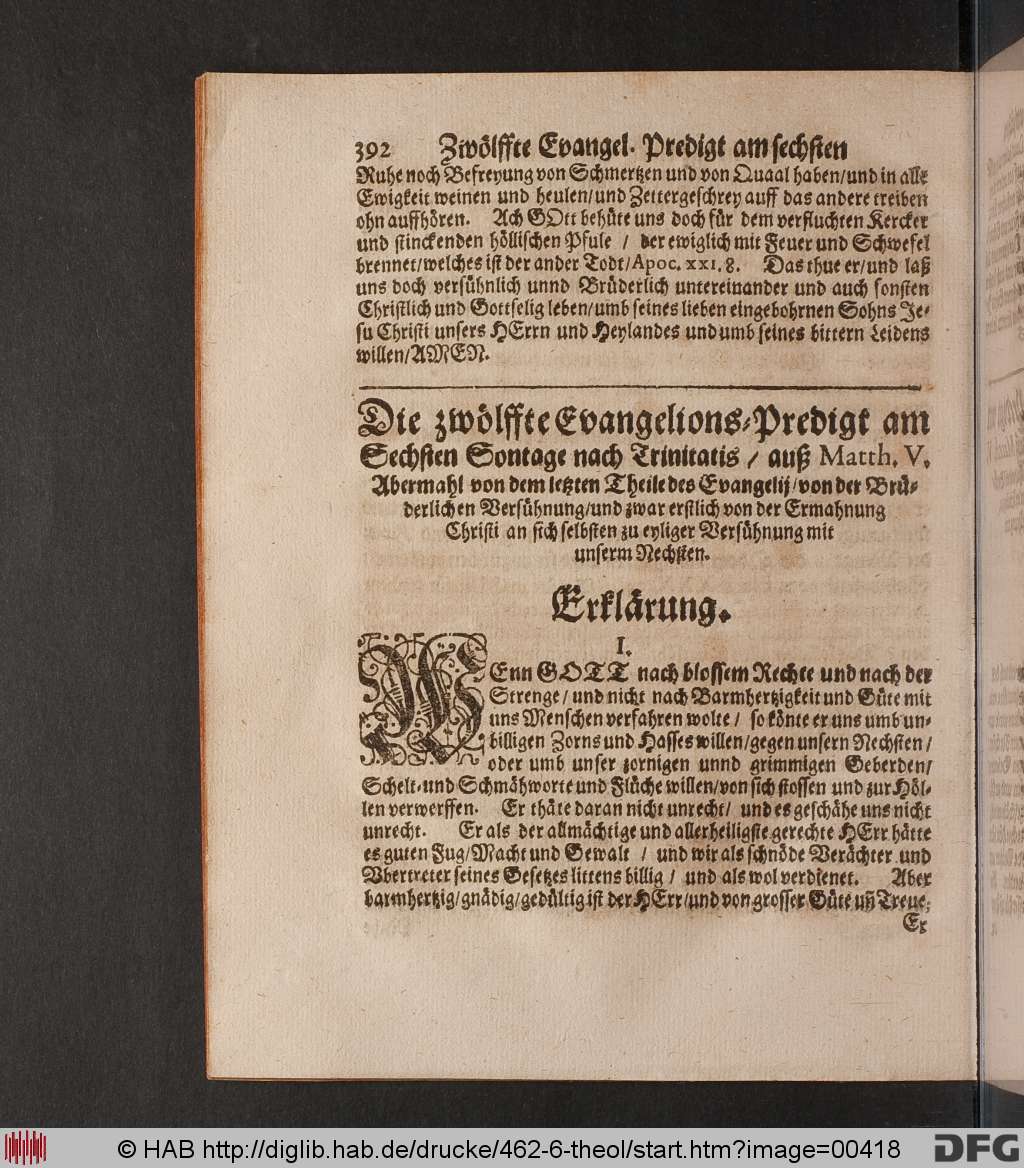 392 Zwölffte Evangel. Predigt am sechsten
Ruhe noch Befreyung von Schmertzen und von Quaal haben/und in alle
Ewigkeit weinen und heulen/und Zettergeschrey auff das andere treiben
ohn auffhören. Ach GOtt behüte uns doch für dem verfluchten Kercker
und stinckenden höllischen Pfule / der ewiglich mit Feuer und Schwefel
brennet/welches ist der ander Todt/Apoc. XXI. 8. Das thue er/und laß
uns doch versühnlich unnd Brüderlich untereinander und auch sonsten
Christlich und Gottselig leben/umb seines lieben eingebohrnen Sohns Je-
su Christi unsers HErrn und Heylandes und umb seines bittern Leidens
willen/AMEN.
Die zwölffte Evangelions-Predigt am
Sechsten Sontage nach Trinitatis / auß Matth. V.
Abermahl von dem letzten Theile des Evangelij/von der Brü-
derlichen Versühnung/und zwar erstlich von der Ermahnung
Christi an sich selbsten zu eyliger Versühnung mit
unserm Nechsten.
Erklärung.
I.
WEnn GOTT nach blossem Rechte und nach der
Strenge / und nicht nach Barmhertzigkeit und Güte mit
uns Menschen verfahren wolte / so könte er uns umb un-
billigen Zorns und Hasses willen/gegen unsern Nechsten /
oder umb unser zornigen unnd grimmigen Geberden/
Schelt-und Schmähworte und Flüche willen/von sich stossen und zur Höl-
len verwerffen. Er thäte daran nicht unrecht/ und es geschähe uns nicht
unrecht. Er als der allmächtige und allerheiligste gerechte HErr hätte
es guten Fug/Macht und Gewalt / und wir als schnöde Verächter und
Vbertreter seines Gesetzes littens billig / und als wol verdienet. Aber
barmhertzig/gnädig/gedültig ist der HErr/und von grosser Güte uñ Treue;
Er
© HAB http://diglib.hab.de/drucke/462-6-theol/start.htm?image=00418
DFG